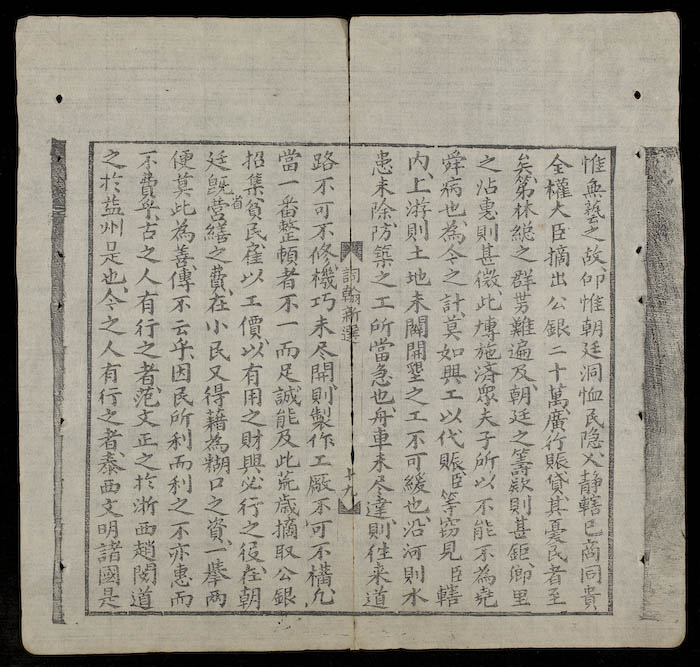 惟無藝之故仰惟朝廷洞恤民隐乂静轄已商同貴
全權大臣摘出公銀二十萬廣行賑貸其憂民者至
矣第林緫之群势難遍及朝廷之籌欵則甚鉅鄉里
之沾惠則甚微此博施済衆夫子所以不能不為堯
舜病也為今之計莫如興工以代賑臣等窃見臣轄
内上游則土地未闢開墾之工不可緩也沿河則水
患未除防築之工所當急也舟車未尽達則往来道
詞翰新選 十九
路不可不修機巧未尽開則製作工廠不可不構凡
當一番整頓者不一而足誠能及此荒歳摘取公銀
招集貧民雇以工價以有用之財興必行之役在朝
廷既省营繕之費在小民又得藉為糊口之資一挙两
便莫此為善傳不云乎因民所利而利之不亦惠而
不費乎古之人有行之者范文正之於浙西趙閱道
之於益州是也今之人有行之者泰西文明諸國是